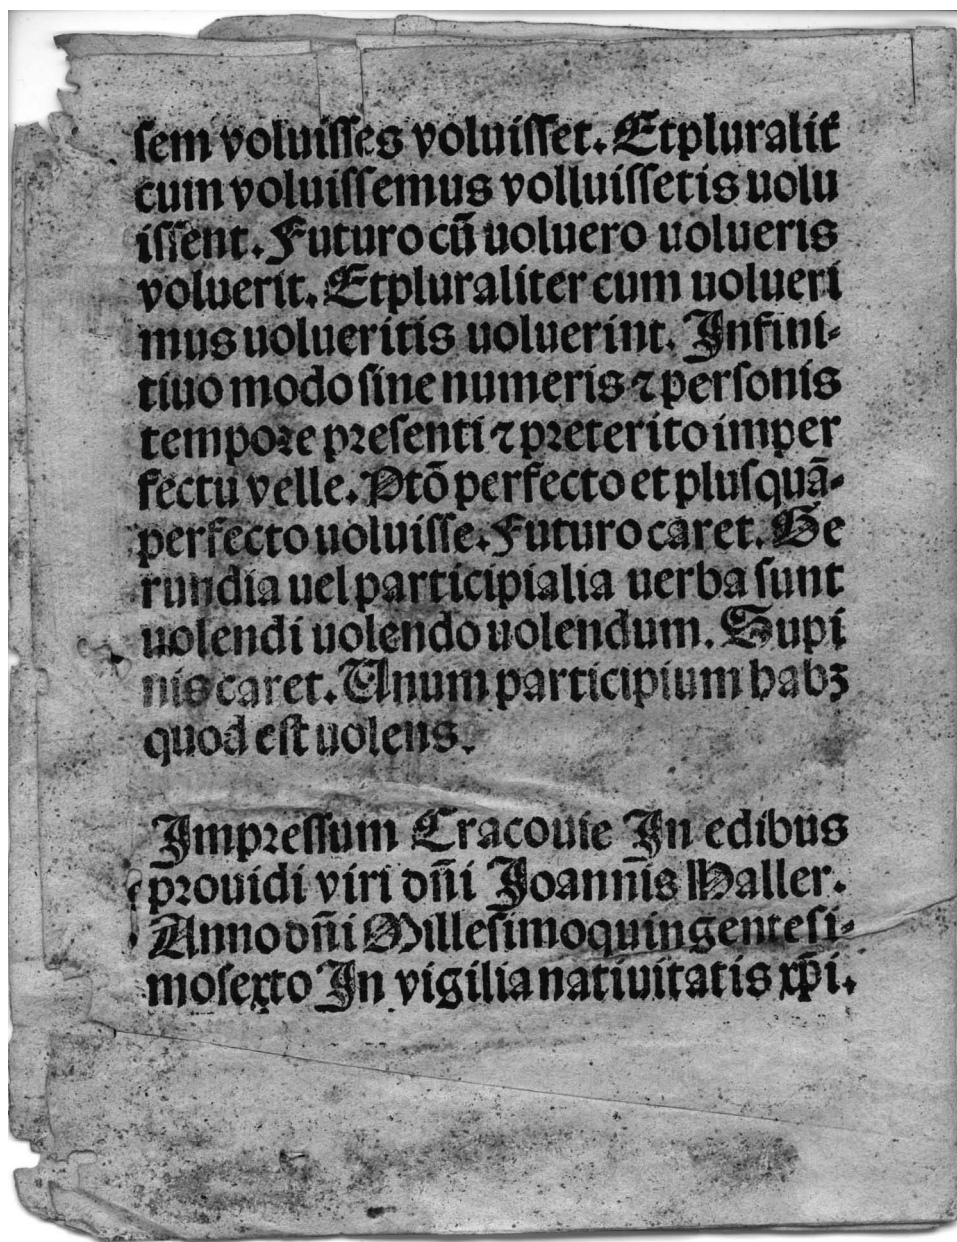 ſem voluiſſes voluiſſet. Etpluralit᷑
cum voluiſſemus volluiſſetis uolu
iſſent. Futuro cū uoluero uolueris
voluerit. Etpluraliter cum uolueri
mus uolueritis uoluerint. Infini-
tiuo modo ſine numeris ⁊ perſonis
tempoꝛe pꝛeſenti ⁊ pꝛeterito imper
fectu velle. Ptō perfecto et pluſquā-
perfecto uoluiſſe. Futuro caret. Ge
rundia uel participialia uerba ſunt
uolendi uolendo uolendum. Supi
nis caret. Unum participium habꝫ
quod eſt uolens.
Impꝛeſſum Cracouie In edibus
pꝛouidi viri dn̄i Joannīs Haller.
Anno dn̄i Milleſimoquingenteſi-
moſexto In vigilia natiuitatis xp̄i.